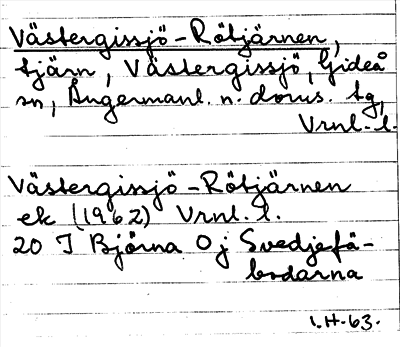 Västergissjö-Rötjärnen,
tjärn, Västergissjö, Gideå
sn, Ångermanl. n. doms. tg,
Vrnl. l.
Västergissjö-Rötjärnen
ek (1962) Vrnl. l.
20 I Björna O j Svedjefä-
bodarna
I.H-63.